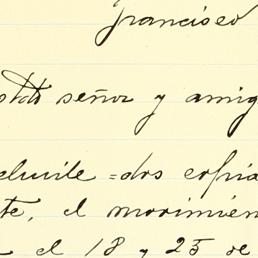 francisco
señor y amig
dos copia
te, el movimien
el 18 y 25 de